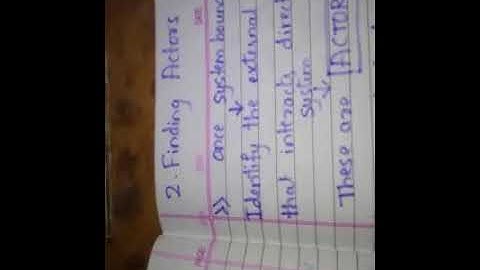 2. Finding Actors
>> once system boun
↓
Identify the external
that interacts direct
system
↓
These are [ACTOR